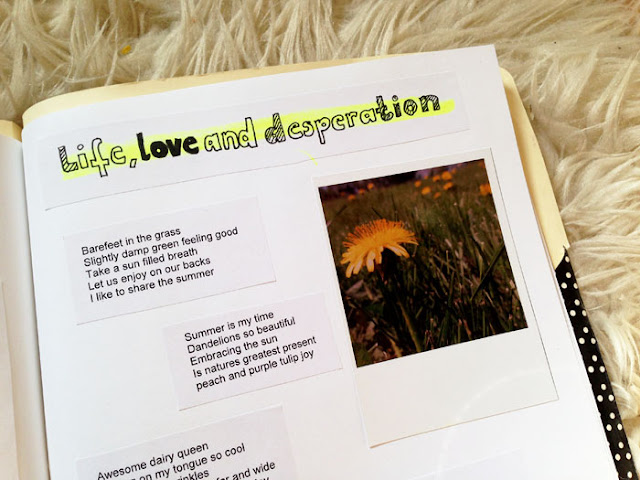 Life, love and desperation
Barefeet in the grass
Slightly damp green feeling good
Take a sun filled breath
Let us enjoy on our backs
I like to share the summer
Summer is my time
Dandelions so beautiful
Embracing the sun
Is natures greatest present
peach and purple tulip joy
Awesome dairy queen
on my tongue so cool
and wide